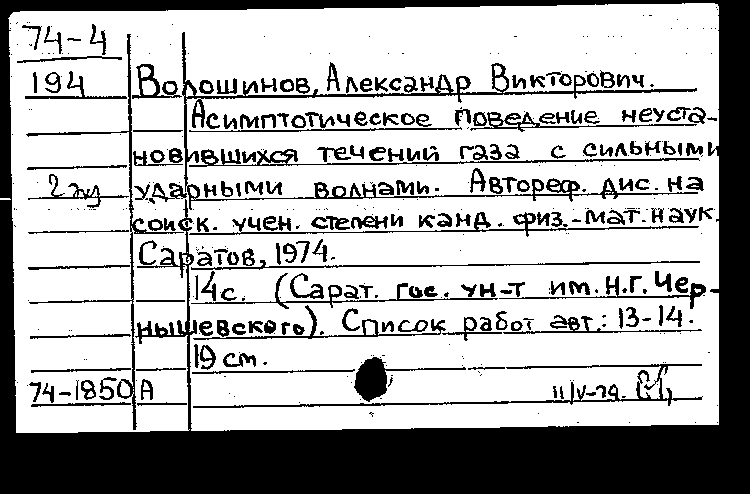 74-4
194 Волошинов, Александр Викторович.
Асимптотическое поведение неуста-
новившихся течений газа с сильными
2 экз ударными волнами. Автореф. дис. на
соиск. учен. степени канд. физ.-мат. наук.
Саратов, 1974.
14с. (Сарат. гос. ун-т им. Н.Г. Чер-
нышевского). Список работ авт.: 13-14.
19 см.
74-1850 А